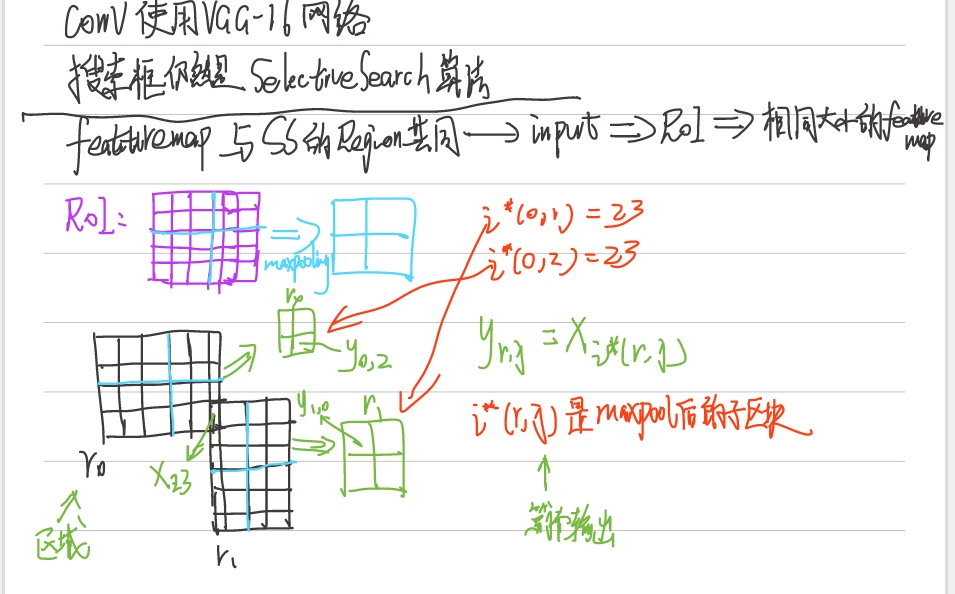 Conv 使用VGG-16 网络
搜索框仍然是 SelectiveSearch 算法
featuremap 与 SS 的 Region 共同 → input ⇒ RoI ⇒ 相同大小的 feature map
RoI:
maxpooling
i*(0,1) = 23
i*(0,2) = 23
r0
y0,2
yr,j = xi*(r,j)
y1,0
r1
i*(r,j) 是 maxpool 后的子区块
r0
x23
区域
输出
r1